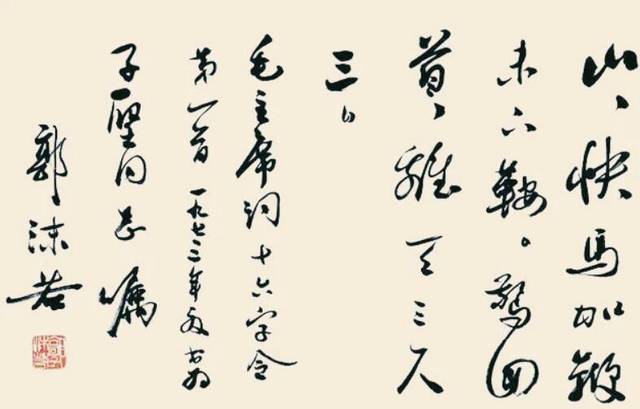 山、快馬加鞭
未下鞍。驚回
首、離天三尺
三。
毛主席詞十六字令
第一首 一九七二年 書為
子 同志嘱
郭沫若